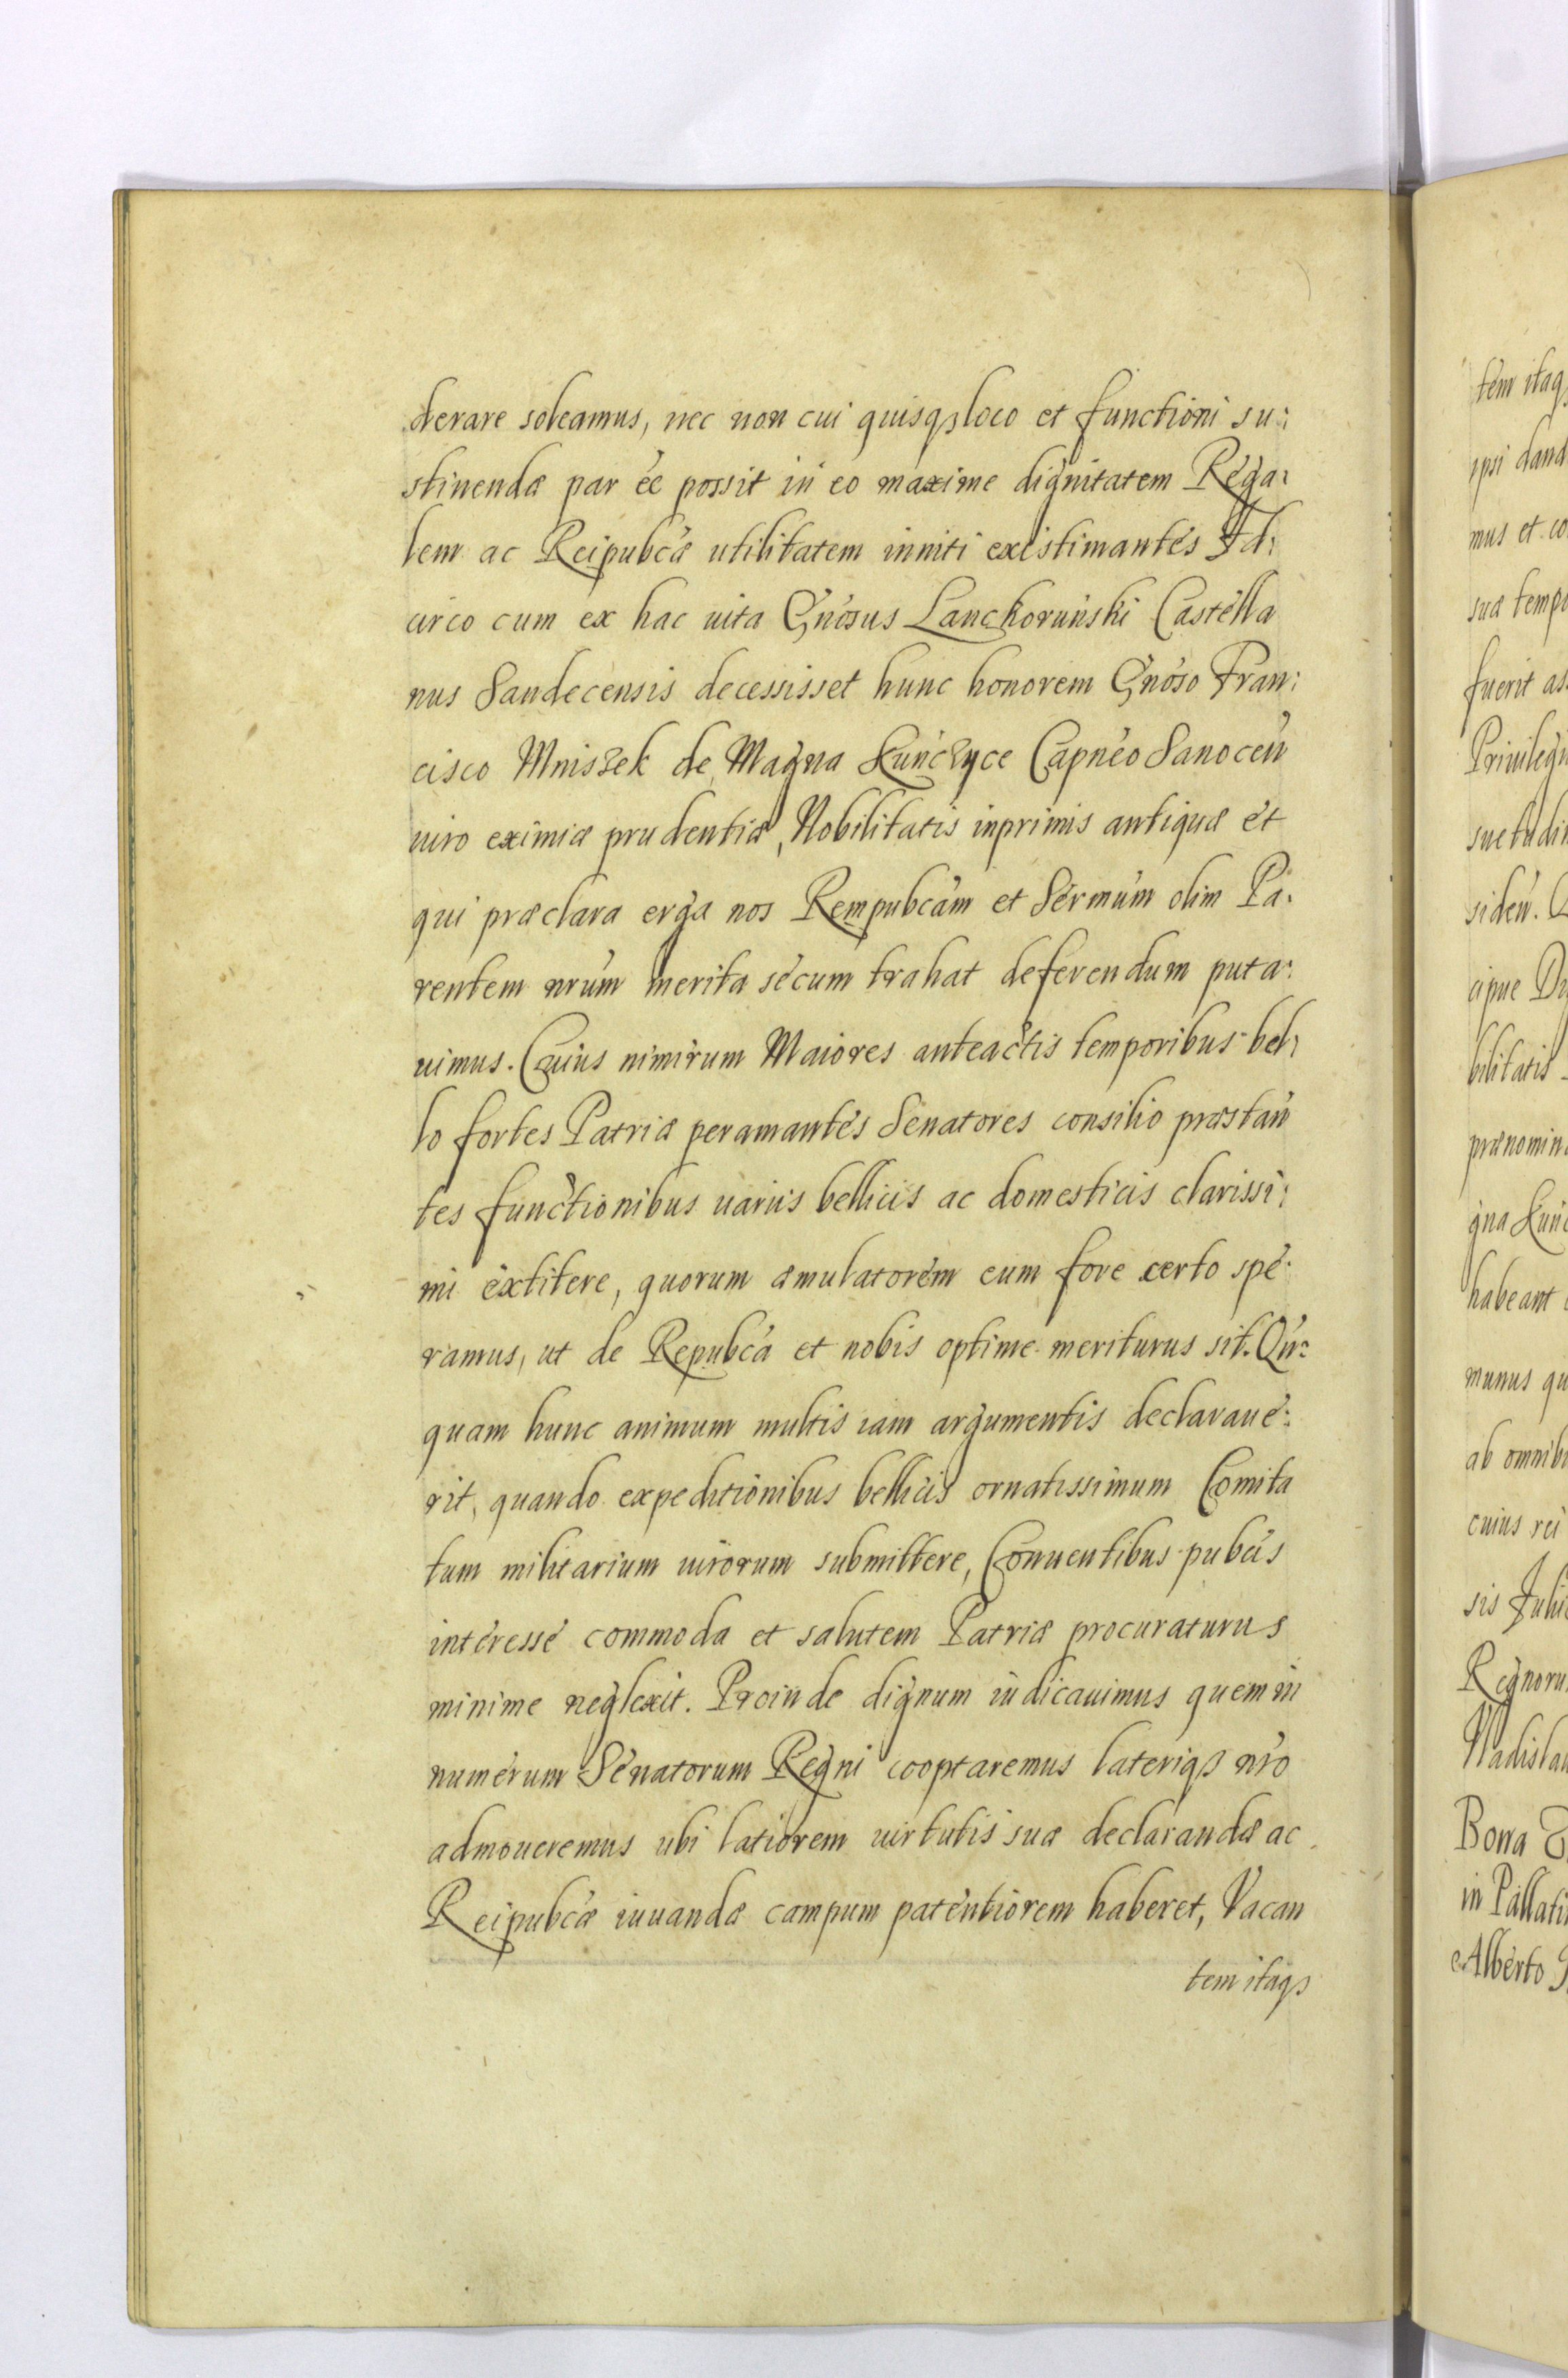 derare soleamus, nec non cui quisqȝ loco et functioni su:
stinendæ par ee possit in eo maxime dignitatem Rega:
lem ac Reipubcæ utilitatem inniti existimantes Id:
circo cum ex hac uita Gnosus Lanckorunski Castella
nus Sandecensis decessisset hunc honorem Gnoso Fran:
cisco Mniszek de Magna Kunczyce Capneo Sanocen
uiro eximiæ prudentiæ, Nobilitatis inprimis antiquæ et
qui præclara erga nos Rempubcam et Sermum olim Pa:
rentem nrum merita secum trahat deferendum puta:
uimus. Cuius nimirum Maiores anteactis temporibus bel:
lo fortes Patriæ peramantes Senatores consilio præstan
tes functionibus uariis bellicis ac domesticis clarissi:
mi extitere, quorum æmulatorem eum fore certo spe:
ramus, ut de Repubca et nobis optime meriturus sit. Qn:
quam hunc animum multis iam argumentis declaraue:
rit, quando expeditionibus bellicis ornatissimum Comita
tum militarium uirorum submittere, Conuentibus pubcis
interesse commoda et salutem Patriæ procuraturus
minime neglexit. Proinde dignum iudicauimus quem in
numerum Senatorum Regni cooptaremus lateriqȝ nro
admoueremus ubi latiorem uirtutis suæ declarandæ ac
Reipubcæ iuuandæ campum patentiorem haberet, Vacan
tem itaqȝ
tem itaqȝ
ipsi dand
mus et co
suæ tempo
fuerit as
Priuilegi
suetudin
siden.
cipue Di
bilitatis
prænomin
gna Kunc
habeant
munus qu
ab omnibu
cuius rei
sis Julii
Regnoru
Vladislau
Bona
in Pallati
Alberto